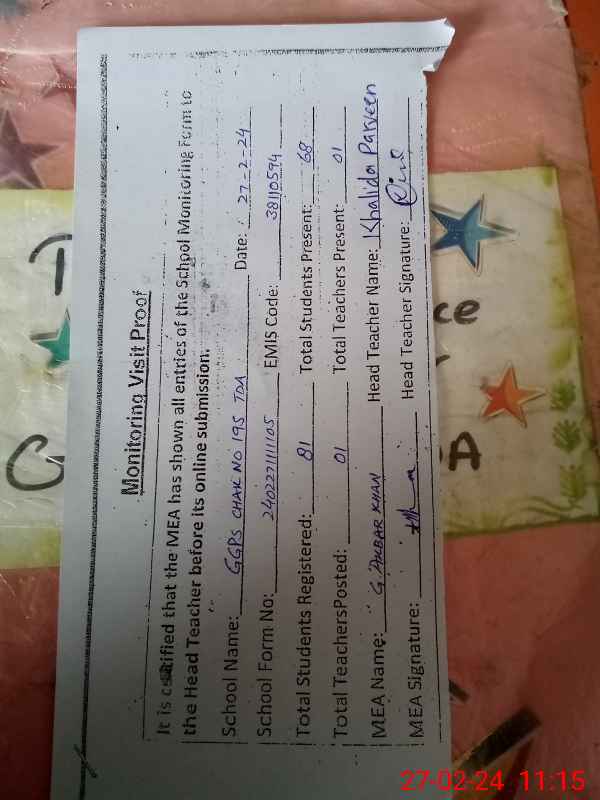 Monitoring Visit Proof
It is certified that the MEA has shown all entries of the School Monitoring Form to
the Head Teacher before its online submission.
School Name: GGPS CHAK NO 195 TDA Date: 27-2-24
School Form No: 240227111105 EMIS Code: 38110594
Total Students Registered: 81 Total Students Present: 68
Total TeachersPosted: 01 Total Teachers Present: 01
MEA Name: G. AKBAR KHAN Head Teacher Name: Khalida Parveen
MEA Signature: Head Teacher Signature:
ce
A
27-02-24 11:15